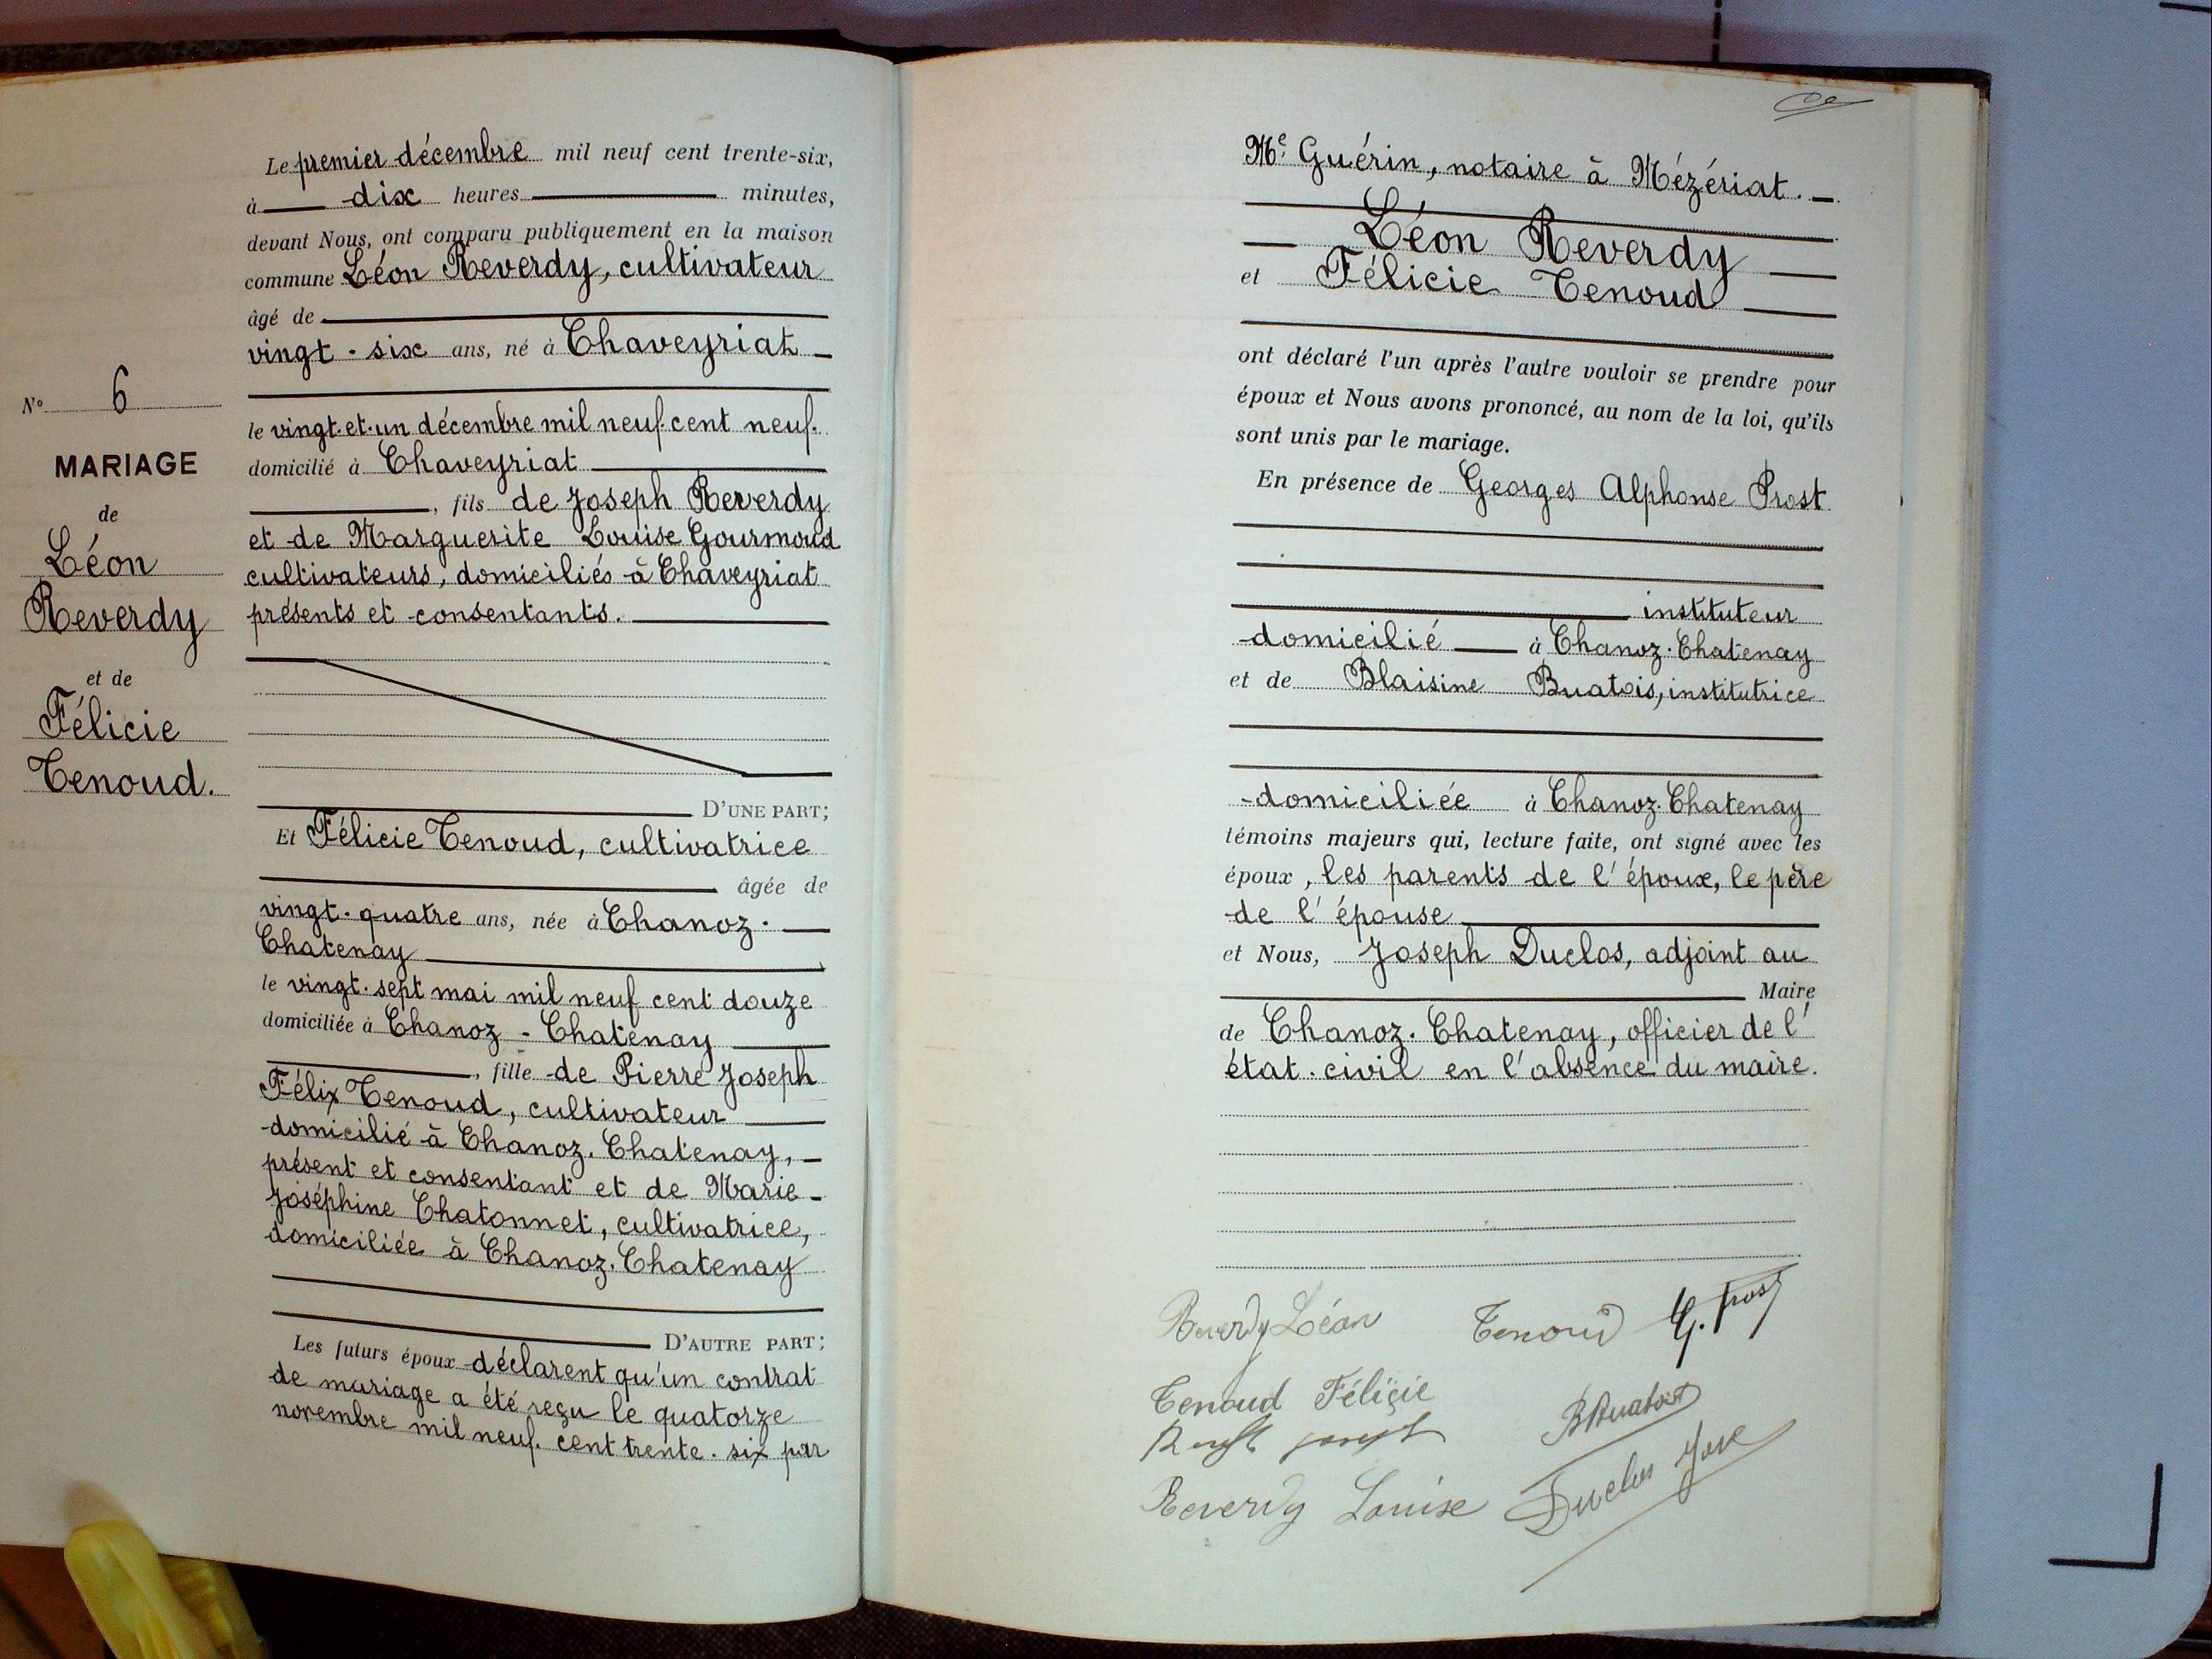 N° 6
MARIAGE
de
Léon
Reverdy
et de
Félicie
Tenoud.
Le premier décembre mil neuf cent trente-six,
à dix heures minutes,
devant Nous, ont comparu publiquement en la maison
commune Léon Reverdy, cultivateur
âgé de
vingt-six ans, né à Chaveyriat
le vingt-et-un décembre mil neuf cent neuf.
domicilié à Chaveyriat
, fils de Joseph Reverdy
et de Marguerite Louise Gourmoud
cultivateurs, domiciliés à Chaveyriat
présents et consentants.
D'UNE PART;
Et Félicie Tenoud, cultivatrice
âgée de
vingt-quatre ans, née à Chanoz-
Chatenay
le vingt-sept mai mil neuf cent douze
domiciliée à Chanoz-Chatenay
, fille de Pierre Joseph
Félix Tenoud, cultivateur
domicilié à Chanoz-Chatenay,
présent et consentant et de Marie-
Joséphine Chatonnet, cultivatrice,
domiciliée à Chanoz-Chatenay
D'AUTRE PART;
Les futurs époux déclarent qu'un contrat
de mariage a été reçu le quatorze
novembre mil neuf cent trente-six par
Me Guérin, notaire à Mézériat.
Léon Reverdy
et Félicie Tenoud
ont déclaré l'un après l'autre vouloir se prendre pour
époux et Nous avons prononcé, au nom de la loi, qu'ils
sont unis par le mariage.
En présence de Georges Alphonse Prost
instituteur
domicilié à Chanoz-Chatenay
et de Blaisine Buatois, institutrice
domiciliée à Chanoz-Chatenay
témoins majeurs qui, lecture faite, ont signé avec les
époux, les parents de l'époux, le père
de l'épouse
et Nous, Joseph Duclos, adjoint au
Maire
de Chanoz-Chatenay, officier de l'
état-civil en l'absence du maire.
Reverdy Léon Tenoud G. Prost
Tenoud Félicie B Buatois
Reverdy Louise Duclos